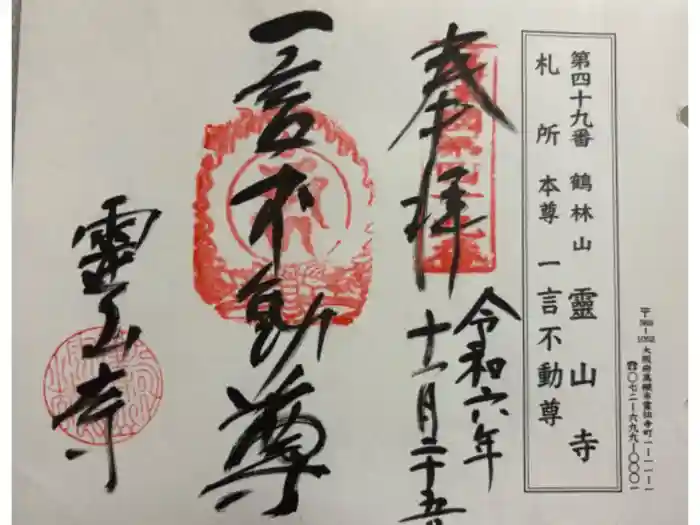 〒569-1052 大阪府高槻市霊仙寺町一-一-一
☎〇七二-六九九-〇〇〇一
第四十九番 鶴林山 靈山寺
札所本尊 一言不動尊
奉拝
令和六年
十一月二十五日
一言不動尊
靈山寺